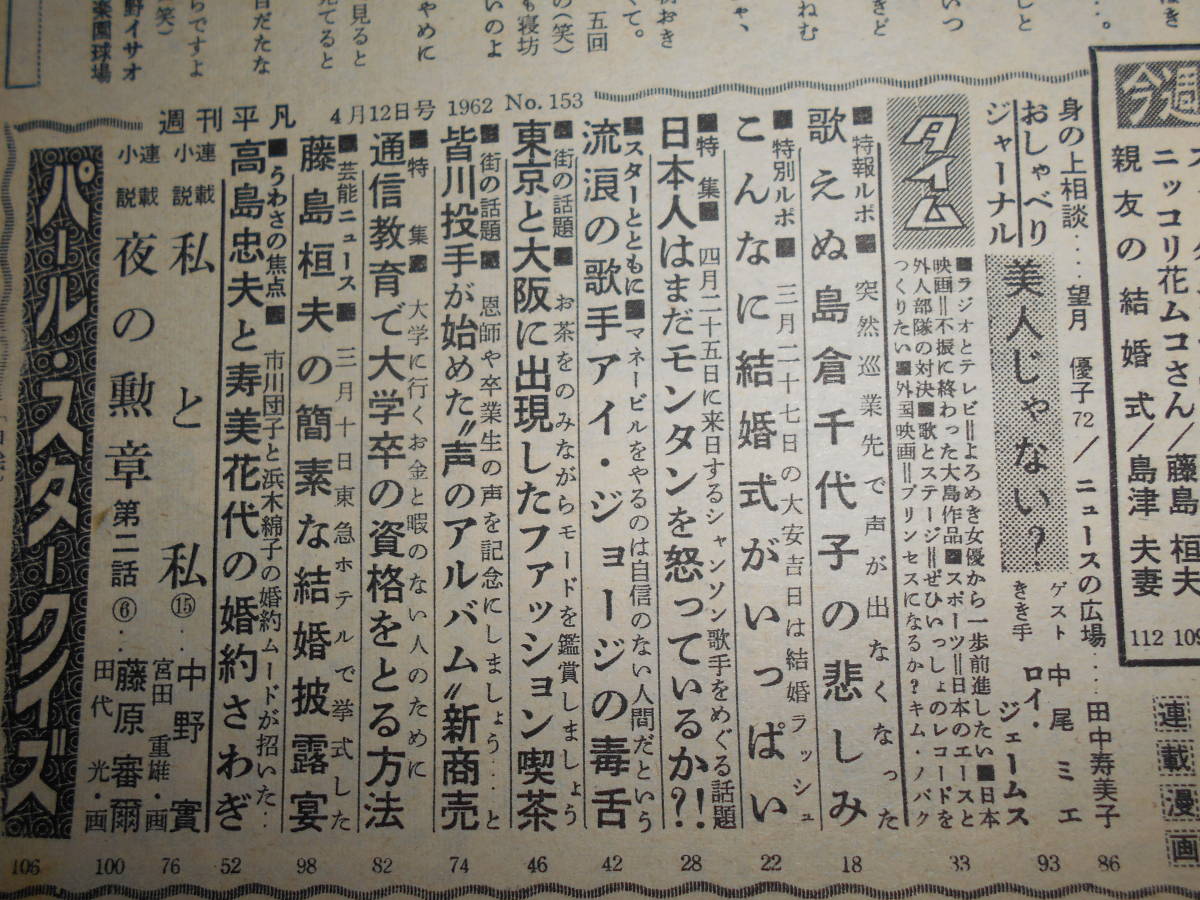 週刊平凡 4月12日号 1962 No. 153
ニッコリ花ムコさん/藤島 桓夫 109
親友の結婚式/島津 夫妻 112
連載漫画
身の上相談‥‥望月 優子 72/ニュースの広場‥‥田中寿美子 86
おしゃべりジャーナル
美人じゃない?
ゲスト 中尾 ミエ
きき手 ロイ・ジェームス
93
タイム
■ラジオとテレビ=よろめき女優から一歩前進したい■日本
映画=不振に終わった大島作品■スポーツ=日本のエースと
外人部隊の対決■歌とステージ=ぜひいっしょのレコードを
つくりたい■外国映画=プリンセスになるか?キム・ノバク
33
■特報ルポ■ 突然巡業先で声が出なくなった
歌えぬ島倉千代子の悲しみ 18
■特別ルポ■ 三月二十七日の大安吉日は結婚ラッシュ
こんなに結婚式がいっぱい 22
■特集■ 四月二十五日に来日するシャンソン歌手をめぐる話題
日本人はまだモンタンを怒っているか?! 28
■スターとともに■ マネービルをやるのは自信のない人間だという
流浪の歌手アイ・ジョージの毒舌 42
■街の話題■ お茶をのみながらモードを鑑賞しましょう
東京と大阪に出現したファッション喫茶 46
■街の話題■ 恩師や卒業生の声を記念にしましょう‥‥と
皆川投手が始めた〝声のアルバム〟新商売 74
■特集■ 大学に行くお金と暇のない人のために
通信教育で大学卒の資格をとる方法 82
■芸能ニュース■ 三月十日東急ホテルで挙式した
藤島桓夫の簡素な結婚披露宴 98
■うわさの焦点■ 市川団子と浜木綿子の婚約ムードが招いた‥
高島忠夫と寿美花代の婚約さわぎ 52
連載小説 私と私⑮‥中野 實 宮田 重雄・画 76
連載小説 夜の勲章 第二話⑥‥藤原審爾 田代 光・画 100
パール・スタークイズ 106